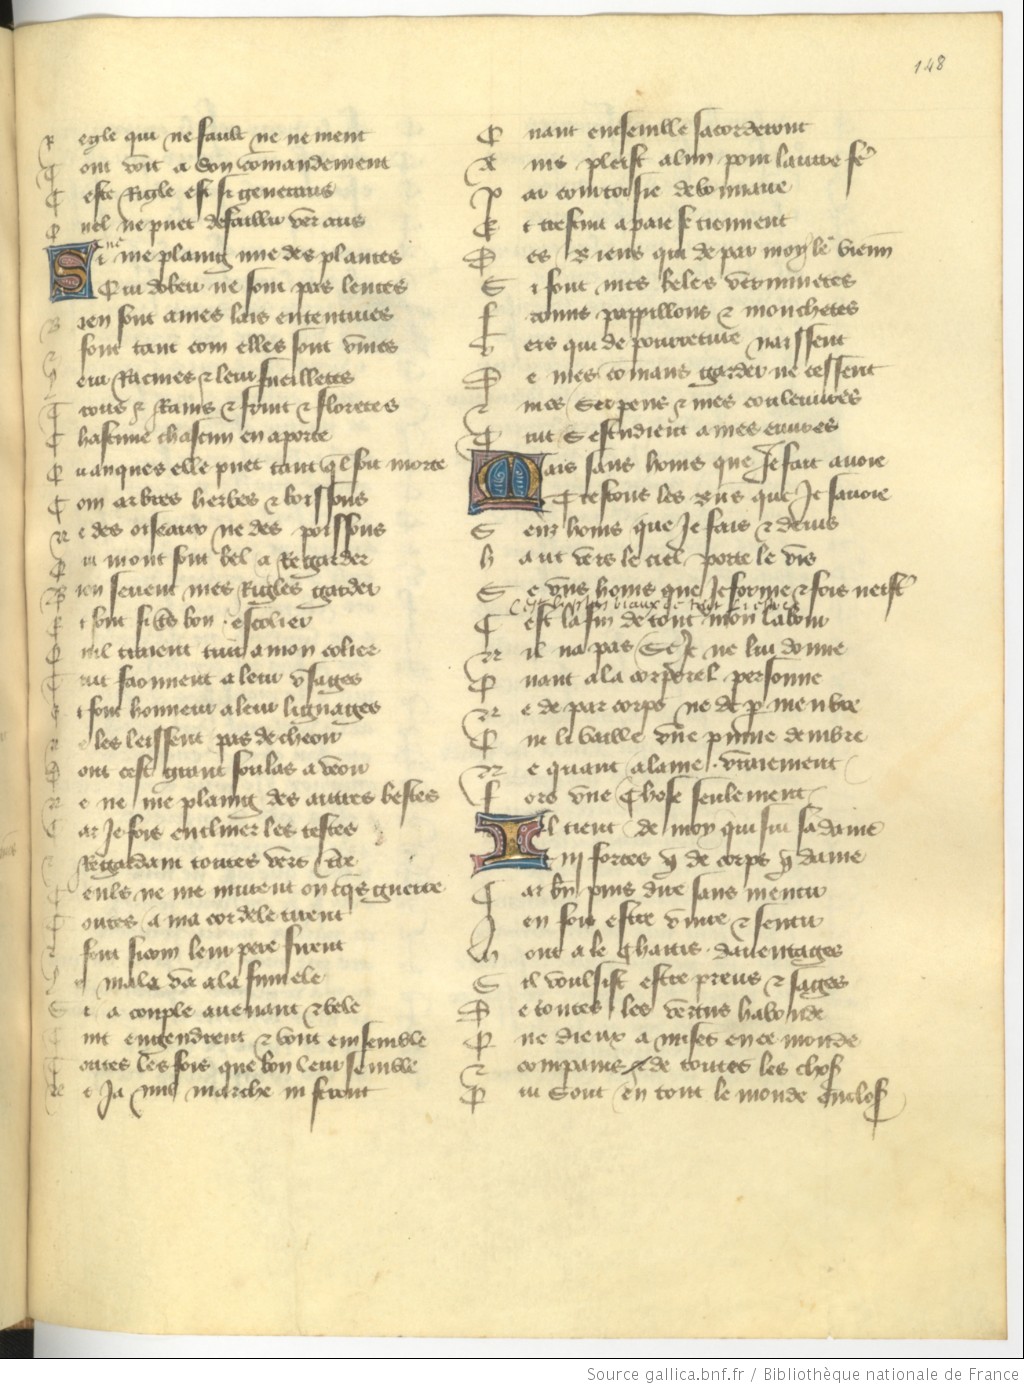 148
Regle qui ne fault ne ne ment
Tout voit a son comandement
Ceste Rigle est si generaus
Quel ne puet defaillir vers aus
Si ne me plaing mie des plantes
Qui dobeir ne sont pas lentes
Bien sont a mes lois ententives
font tant com elles sont vives
leur Racines & leur fueilletes
Tous & Rains & fruit & floretes
Chascune chascun en aporte
Quanques elle puet tant ql soit morte
Com arbres herbes & boissons
Ne des oiseaux ne des poissons
Qui mont sont bel a Regarder
Bien sevent mes Rigles garder
Et sont si tres bon escolier
Quil traient tuit a mon colier
Tuit faonnent a leur usages
Et font honneur a leur lignages
Ne les leissent pas decheoir
Dont cest grant soulas a veoir
Ne ne me plaing des autres bestes
Car Je fois encliner les testes
Regardant toutes vers terre
Ceuls ne me murent onques guerre
Toutes a ma cordele tirent
font sicom leur pere firent
male va a la fumele
Si a couple avenant & bele
Tuit engendrent & vont ensemble
Toutes les fois que bon leur semble
Ne Ja nul marche ni feront
Quant ensemble sacorderont
Ains pleist a lun pour lautre fere
Par courtoisie debonnaire
Et trestuit a paie se tiennent
Des Biens qui de par moy le viennent
Si font mes beles verminetes
formis pappillons & mouchetes
Vers qui de pourreture naissent
De mes comans garder ne cessent
Et mes Serpens & mes couleuvres
Tuit Sestudient a mes euvres
Mais sans homs que Je fait avoie
Trestous les Biens que Je savoie
Seuz homs que Je fais & devis
haut vers le ciel porte le vis
Seuls homs que Je forme & fois nestre
Cest la fin de tout mon labour
Nil na pas Se Je ne lui donne
Quant a la corporel personne
Ne de par corps ne de par menbre
Qui li vaille une pume dembre
Ne quant a lame vraiement
fors une Chose seulement
Il tient de moy qui sui sa dame
Trois forces que de corps que dame
Car bien puis dire sans mentir
Jen fois estre vivre & sentir
Mout a le Chaitis davantages
Sil voulsist estre preus & sages
De toutes les vertus habonde
Que Dieux a mises en ce monde
Compains de toutes les choses
Qui Sont en tout le monde encloses
Source gallica.bnf.fr / Bibliothèque nationale de France